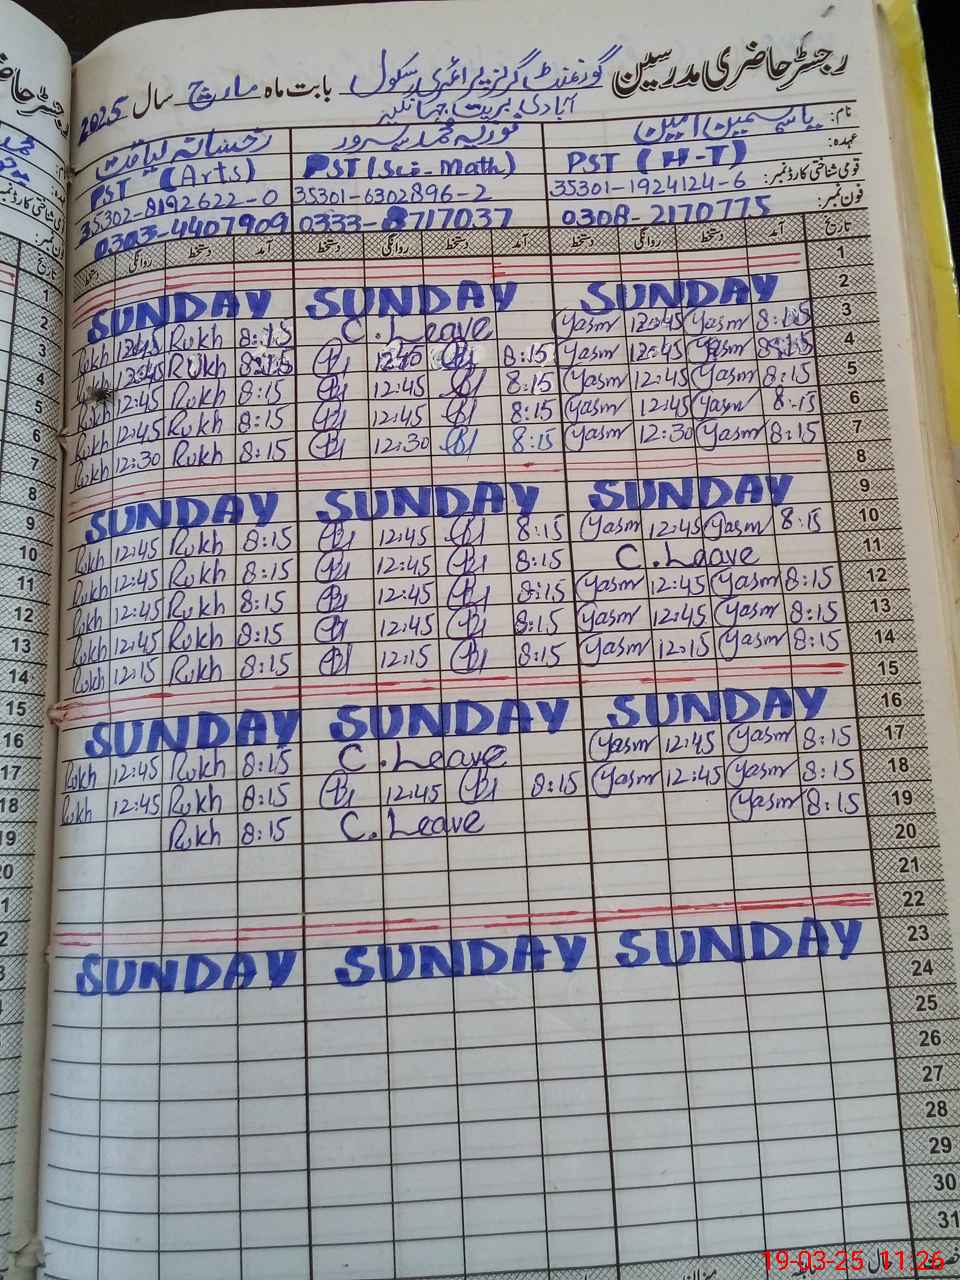 رجسٹر حاضری مدرسین گورنمنٹ گرلز پرائمری سکول بابت ماہ مارچ سال 2025
آبادی
نام: یاسمین امین فوزیہ محمد سرور رخسانہ لیاقت
عہدہ: PST (H-T) PST (Sci-Math) PST (Arts)
قومی شناختی کارڈ نمبر: 35301-1924124-6 35301-6302896-2 35302-8192622-0
فون نمبر: 0308-2170775 0333-8717037 0303-4407909
تاریخ آمد دستخط روانگی دستخط آمد دستخط روانگی دستخط آمد دستخط روانگی دستخط
1
SUNDAY SUNDAY SUNDAY 2
Rukh 12:45 Rukh 8:15 C.Leave Yasm 12:45 Yasm 8:15 3
Rukh 12:45 Rukh 8:15 12:40 8:15 Yasm 12:45 Yasm 8:15 4
Rukh 12:45 Rukh 8:15 12:45 8:15 Yasm 12:45 Yasm 8:15 5
Rukh 12:45 Rukh 8:15 12:45 8:15 Yasm 12:45 Yasm 8:15 6
Rukh 12:30 Rukh 8:15 12:30 8:15 Yasm 12:30 Yasm 8:15 7
8
SUNDAY SUNDAY SUNDAY 9
Rukh 12:45 Rukh 8:15 12:45 8:15 Yasm 12:45 Yasm 8:15 10
Rukh 12:45 Rukh 8:15 12:45 8:15 C.Leave 11
Rukh 12:45 Rukh 8:15 12:45 8:15 Yasm 12:45 Yasm 8:15 12
Rukh 12:45 Rukh 8:15 12:45 8:15 Yasm 12:45 Yasm 8:15 13
Rukh 12:15 Rukh 8:15 12:15 8:15 Yasm 12:15 Yasm 8:15 14
15
SUNDAY SUNDAY SUNDAY 16
Rukh 12:45 Rukh 8:15 C.Leave Yasm 12:45 Yasm 8:15 17
Rukh 12:45 Rukh 8:15 12:45 8:15 Yasm 12:45 Yasm 8:15 18
Rukh 8:15 C.Leave Yasm 8:15 19
20
21
22
SUNDAY SUNDAY SUNDAY 23
24
25
26
27
28
29
30
31
19-03-25 11:26